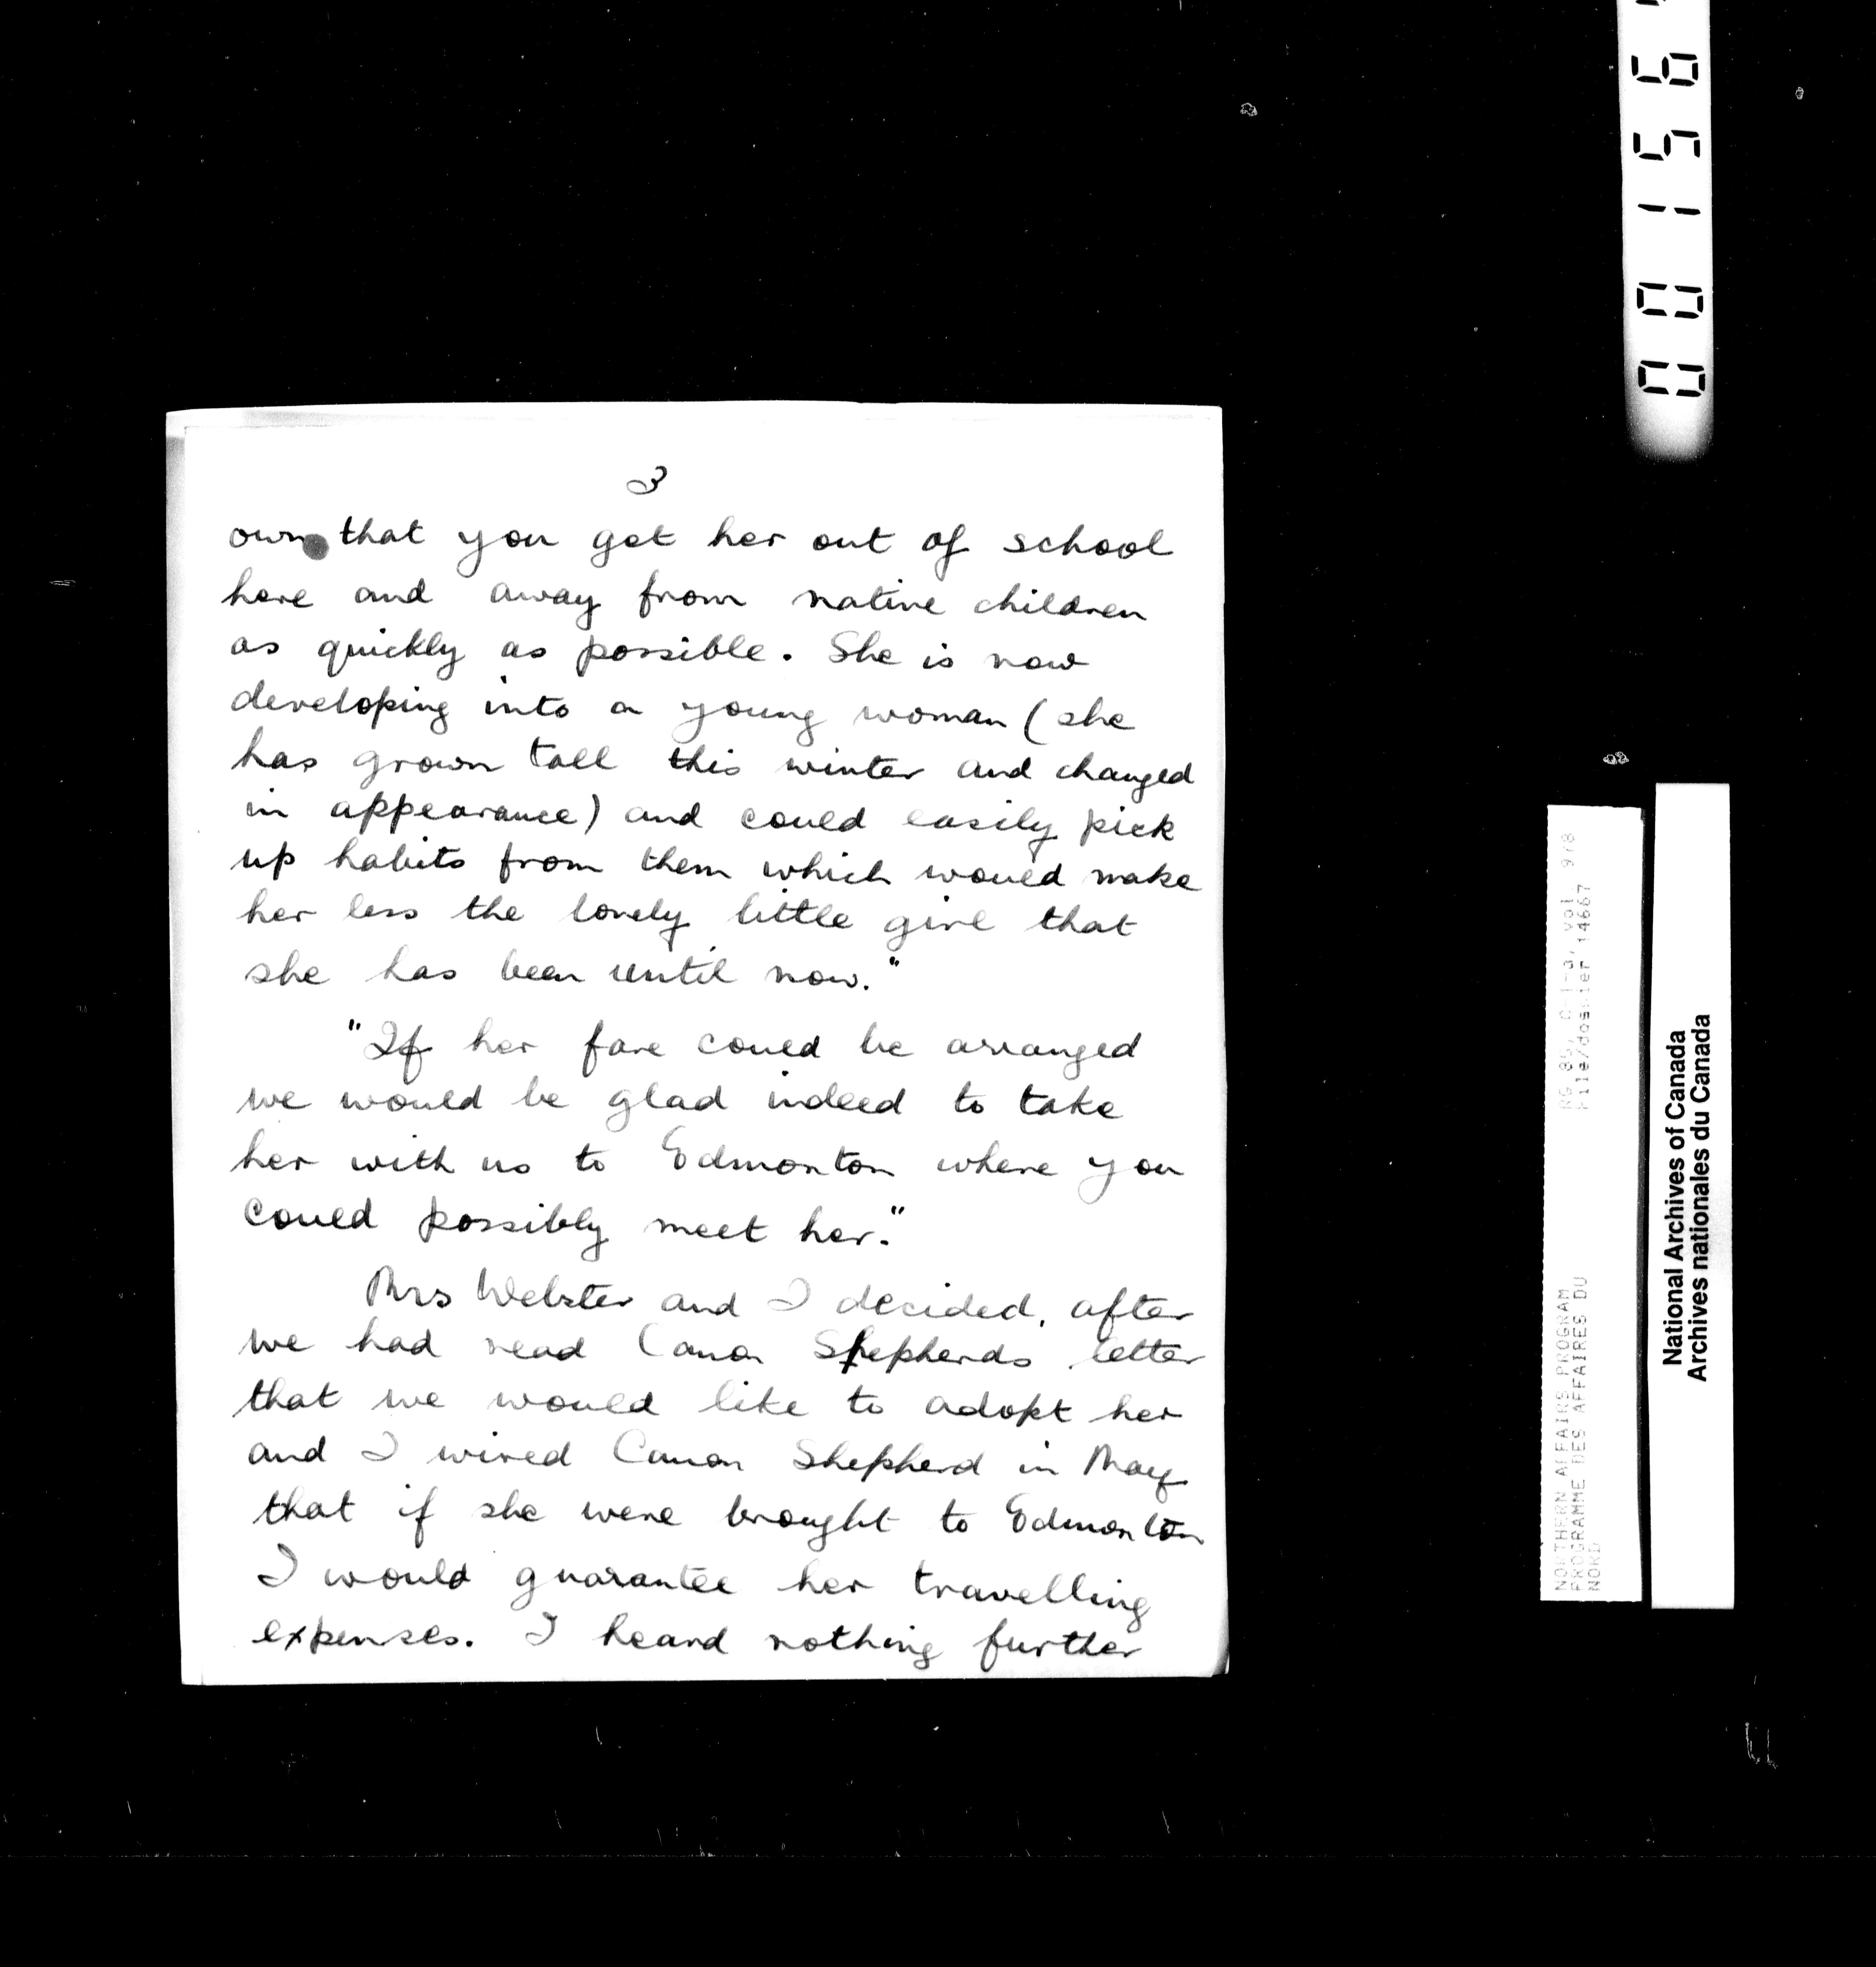 3
own that you get her out of school
here and away from native children
as quickly as possible. She is now
developing into a young woman (she
has grown tall this winter and changed
in appearance) and could easily pick
up habits from them which would make
her less the lovely little girl that
she has been until now."
"If her fare could be arranged
we would be glad indeed to take
her with us to Edmonton where you
could possibly meet her."
Mrs Webster and I decided, after
we had read Canon Shepherds letter
that we would like to adopt her
and I wired Canon Shepherd in May
that if she were brought to Edmonton
I would guarantee her travelling
expenses. I heard nothing further
00156
RG 85, vol 978
File/dossier 14667
NORTHERN AFFAIRS PROGRAM
PROGRAMME DES AFFAIRES DU
NORD
National Archives of Canada
Archives nationales du Canada